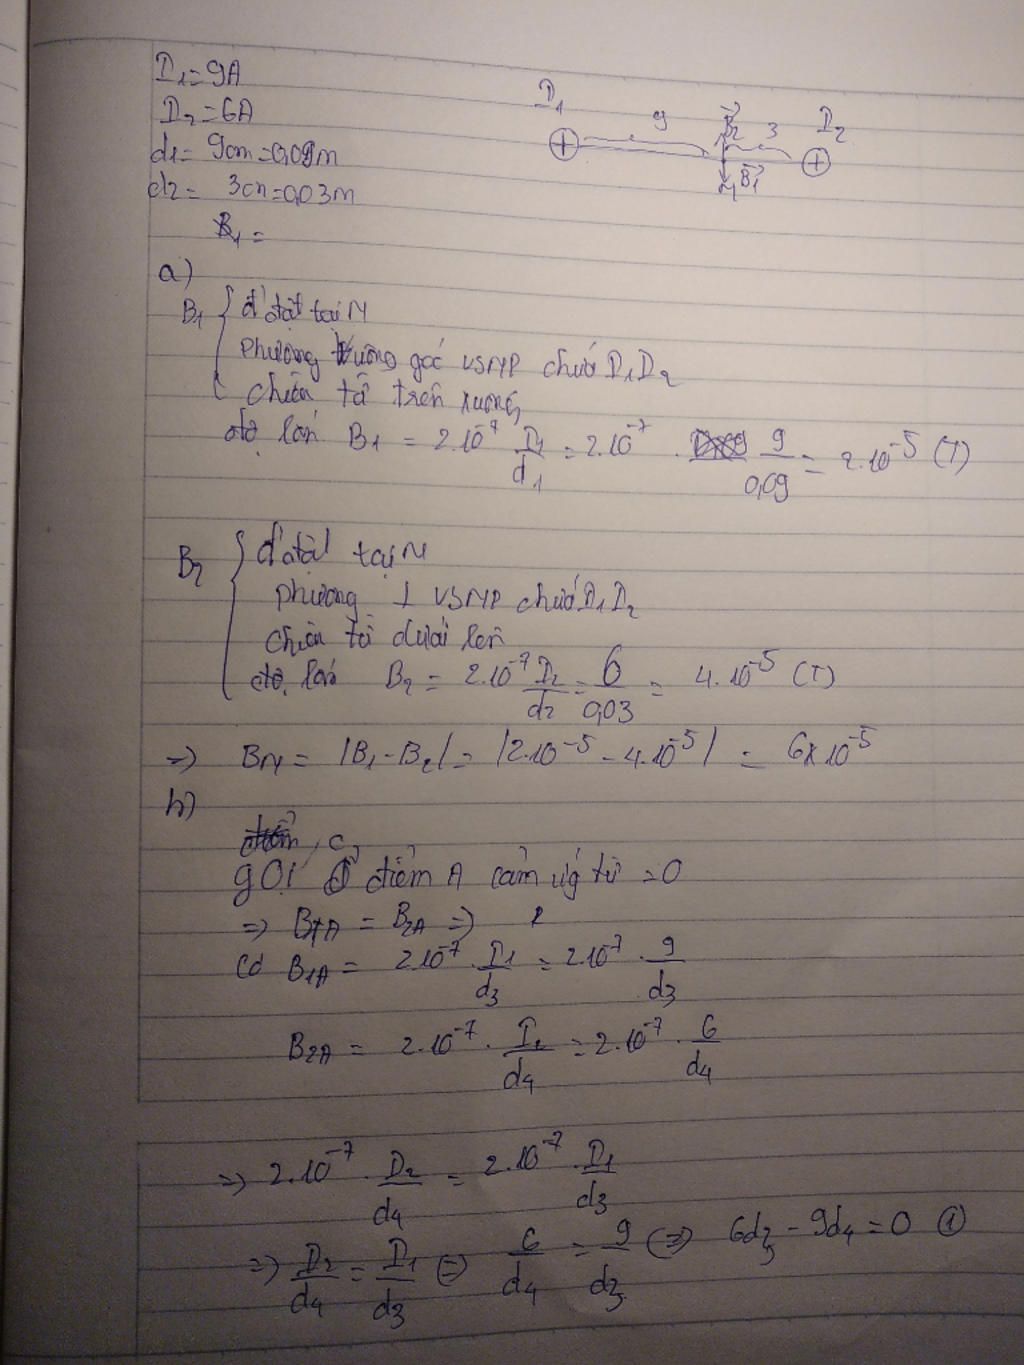 I₁ = 9A
I₂ = 6A
d₁ = 9cm = 0,09m
d₂ = 3cm = 0,03m
B₁ =
I₁ 9 B₂ 3 I₂
M B₁
a)
B₁ { đ' đặt tại M
phương vuông góc với MP chứa I₁I₂
chiều từ trên xuống
độ lớn B₁ = 2.10⁻⁷ I₁/d₁ = 2.10⁻⁷ . 9/0,09 = 2.10⁻⁵ (T)
B₂ { đ' đặt tại M
phương ⊥ với MP chứa I₁I₂
chiều từ dưới lên
độ lớn B₂ = 2.10⁻⁷ I₂/d₂ = 6/0,03 = 4.10⁻⁵ (T)
=> B_M = |B₁ - B₂| = |2.10⁻⁵ - 4.10⁻⁵| = 6x10⁻⁵
b)
gọi điểm A cảm ứg từ = 0
=> B₁A = B₂A =>
Có B₁A = 2.10⁻⁷ . I₁/d₃ = 2.10⁻⁷ . 9/d₃
B₂A = 2.10⁻⁷ . I₂/d₄ = 2.10⁻⁷ . 6/d₄
=> 2.10⁻⁷ . I₂/d₄ = 2.10⁻⁷ . I₁/d₃
=> I₂/d₄ = I₁/d₃ <=> 6/d₄ = 9/d₃ <=> 6d₃ - 9d₄ = 0 ①